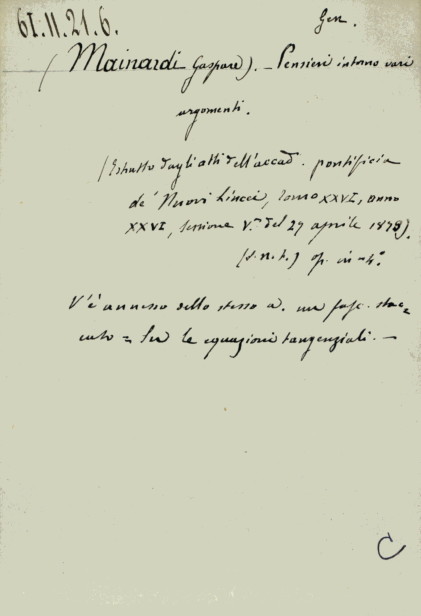 61.11.21.6.
Gen.
(Mainardi Gaspare). - Pensieri intorno vari
argomenti.
(Estratto dagli atti dell'accad. pontificia
de' Nuovi Lincei, tomo XXVI, anno
XXVI, sessione V.a del 27 aprile 1873).
(s. n. t.) op. in-4°.
V'è annesso dello stesso a. un fasc. stac=
cato = Le equazioni tangenziali. -
C